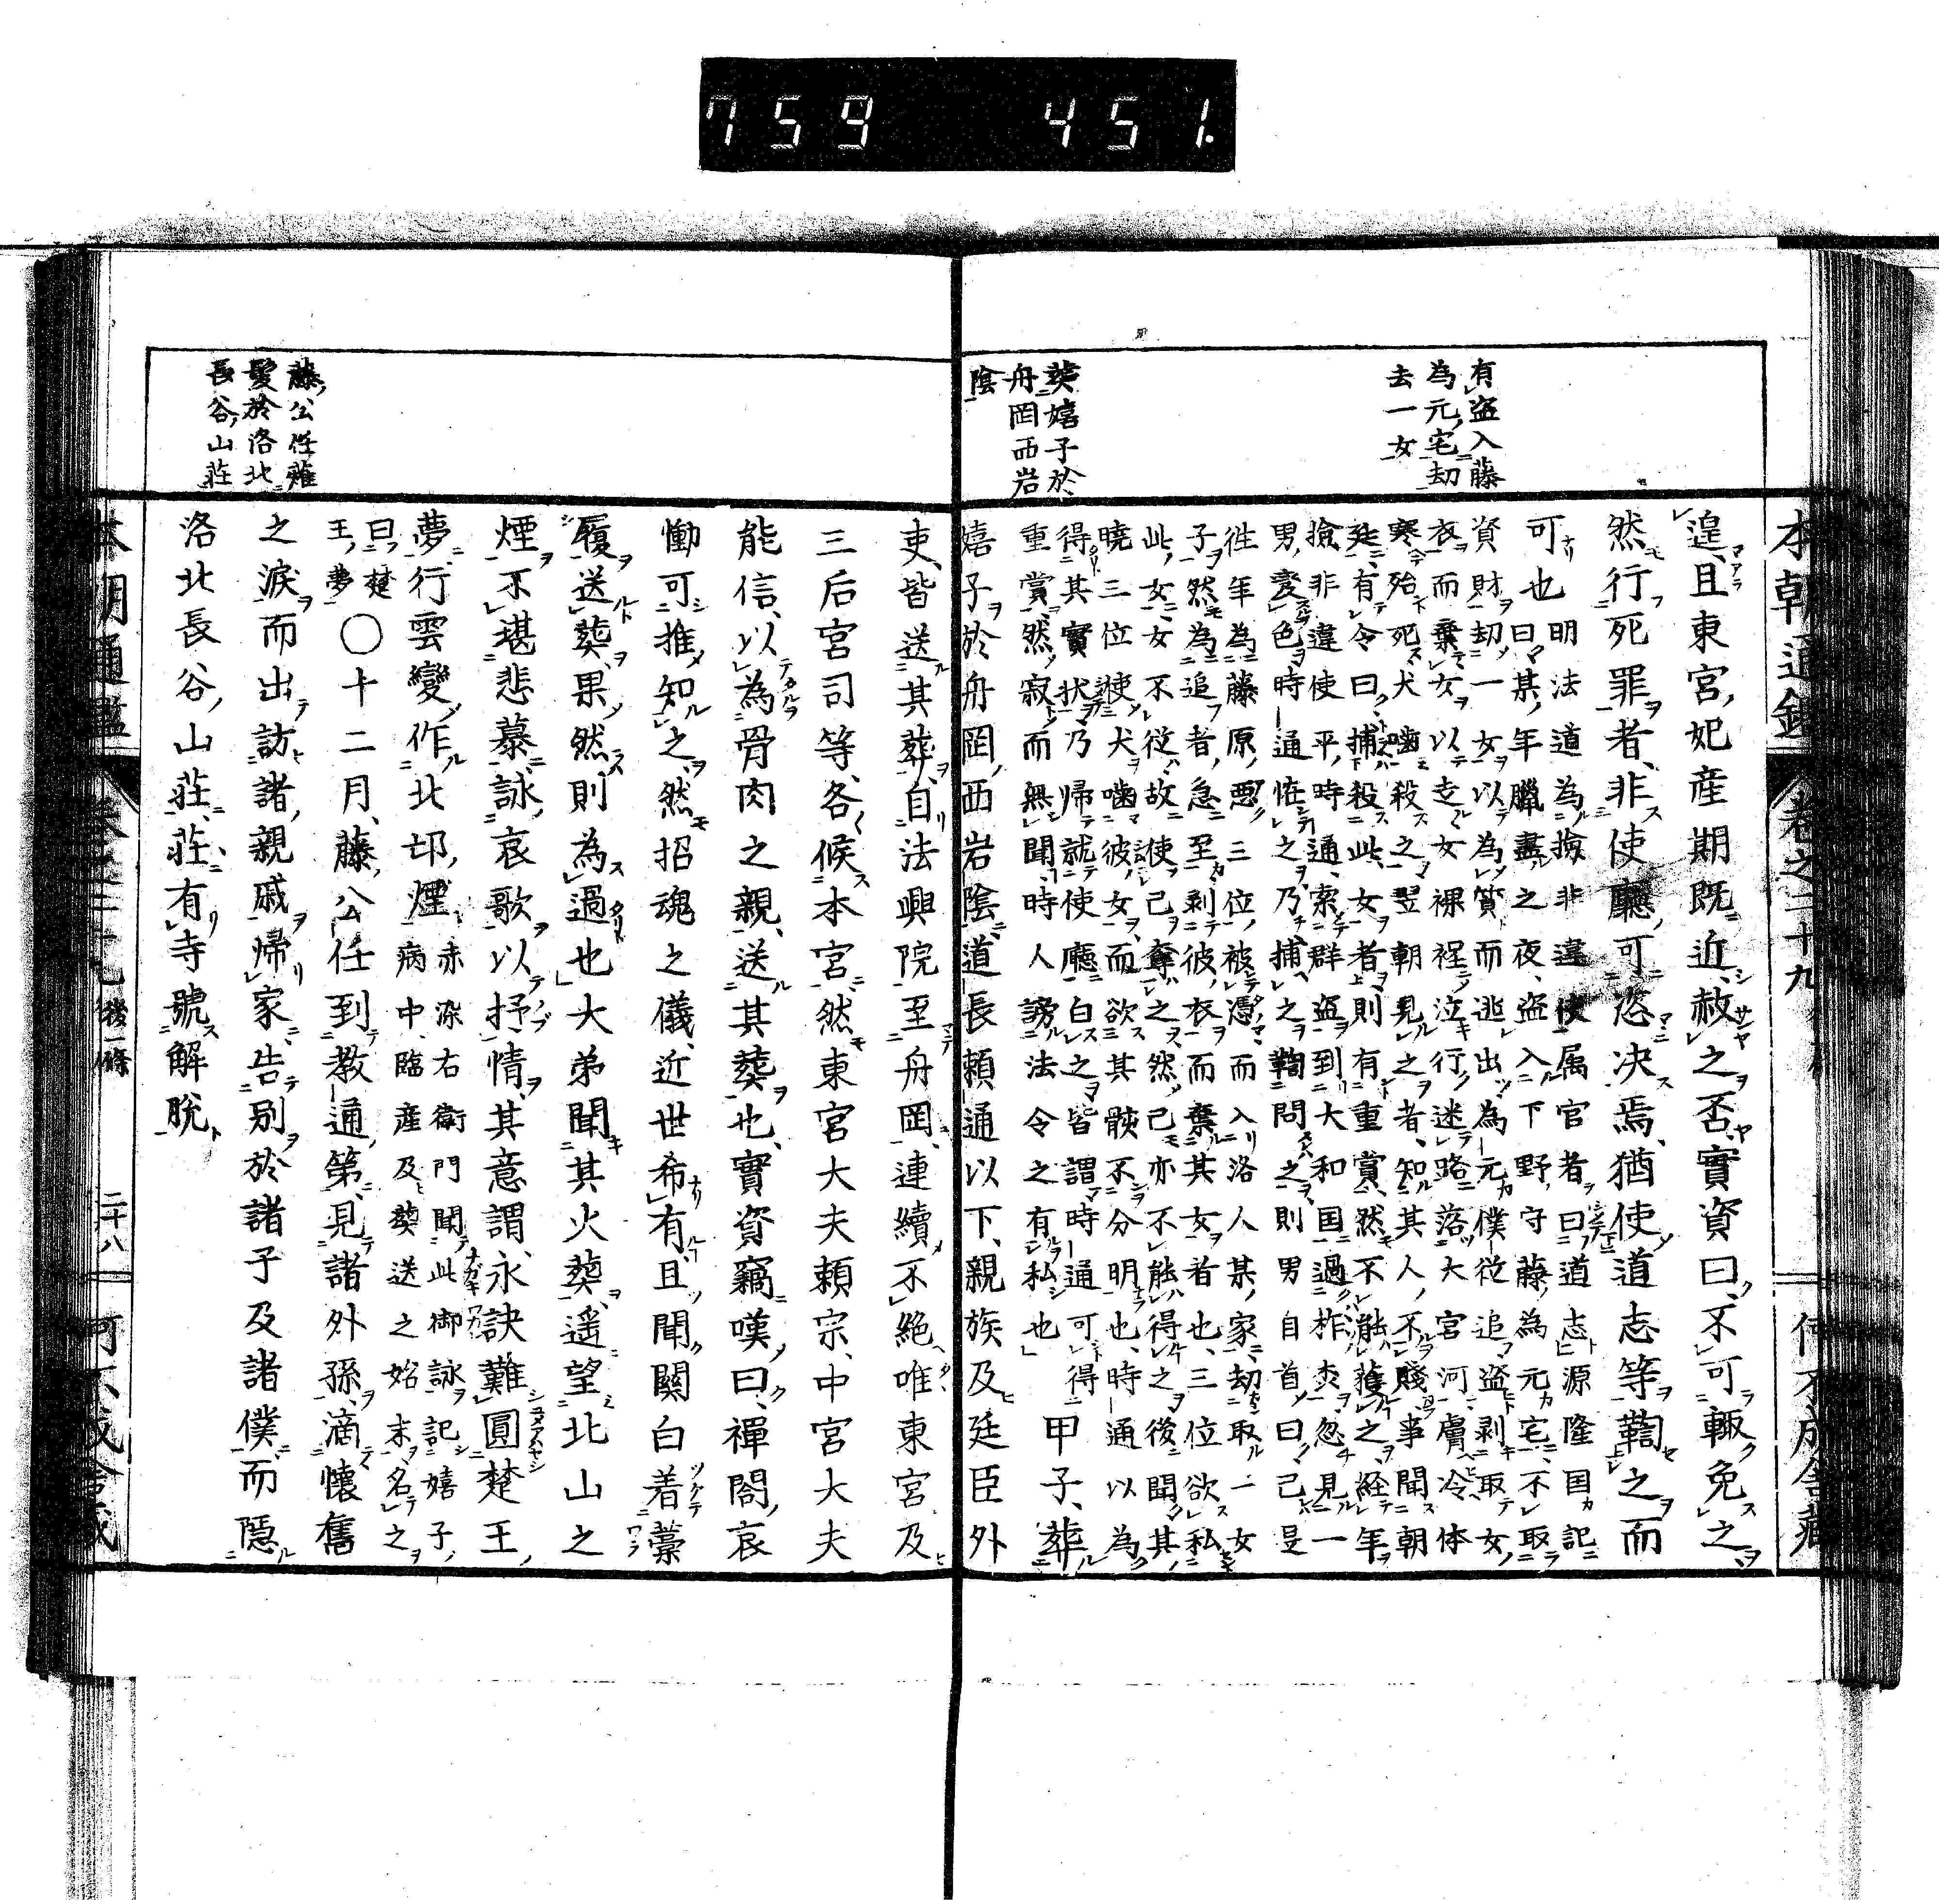 759 451.
有盗入藤
為元宅劫
去一女
葬嬉子於
舟岡西岩
陰
遑、且東宮妃産期既近、赦之否、實資曰、不可輙免之、
然行死罪者、非使廳可恣决焉、猶使道志等鞫之而
可也
明法道為撿非違使属官者曰道志源隆国記
曰某年臘盡之夜、盗入下野守藤為元宅、不取
資財劫一女以為質而逃出、為元僕従追、盗剥取女
衣而棄女以走女裸裎泣行迷路落大宮河膚冷体
寒殆死犬噛殺之、翌朝見之者、知其人、不賤事聞朝
廷、有令曰、捕殺此女者則有重賞、然不能獲之、経年
撿非違使平時通、索群盗到大和国過柞杰忽見一
男、変色時通恠之乃捕之鞫問之、則男自首曰己是
徃年為藤原惡三位被憑而入洛人某家劫取一女
子然為追者急至剥彼衣而棄其女者也、三位欲私
此女、女不従故使己奪之、然己亦不能得之後聞其
曉三位使犬噛彼女、而欲其骸不分明也、時通以為
得其實状乃帰就使廳白之皆謂時通可得
重賞然寂而無聞時人謗法令之有私也
甲子、葬
嬉子於舟岡西岩陰道長頼通以下親族及廷臣外
吏、皆送其葬、自法興院至舟岡、連續不絶唯東宮及
三后宮司等、各候本宮、然東宮大夫頼宗、中宮大夫
能信、以為骨肉之親、送其葬也、實資竊嘆曰、禪閤哀
慟可推知之、然招魂之儀、近世希有、且聞關白着藁
履送葬、果然則為過也大弟聞其火葬、遥望北山之
煙不堪悲慕、詠哀歌以抒情、其意謂、永訣難圓楚王
夢、行雲變作北邙煙
赤染右衛門聞此御詠記嬉子
病中臨産及葬送之始末名之
曰楚
王夢
○十二月、藤公任到教通第、見諸外孫、滴懐舊
之淚而出訪諸親戚帰家、告别於諸子及諸僕而隠
洛北長谷山荘、荘有寺號解脱
藤公任薙
髮於洛北
長谷山荘
本朝通鑑
後一條
二十八